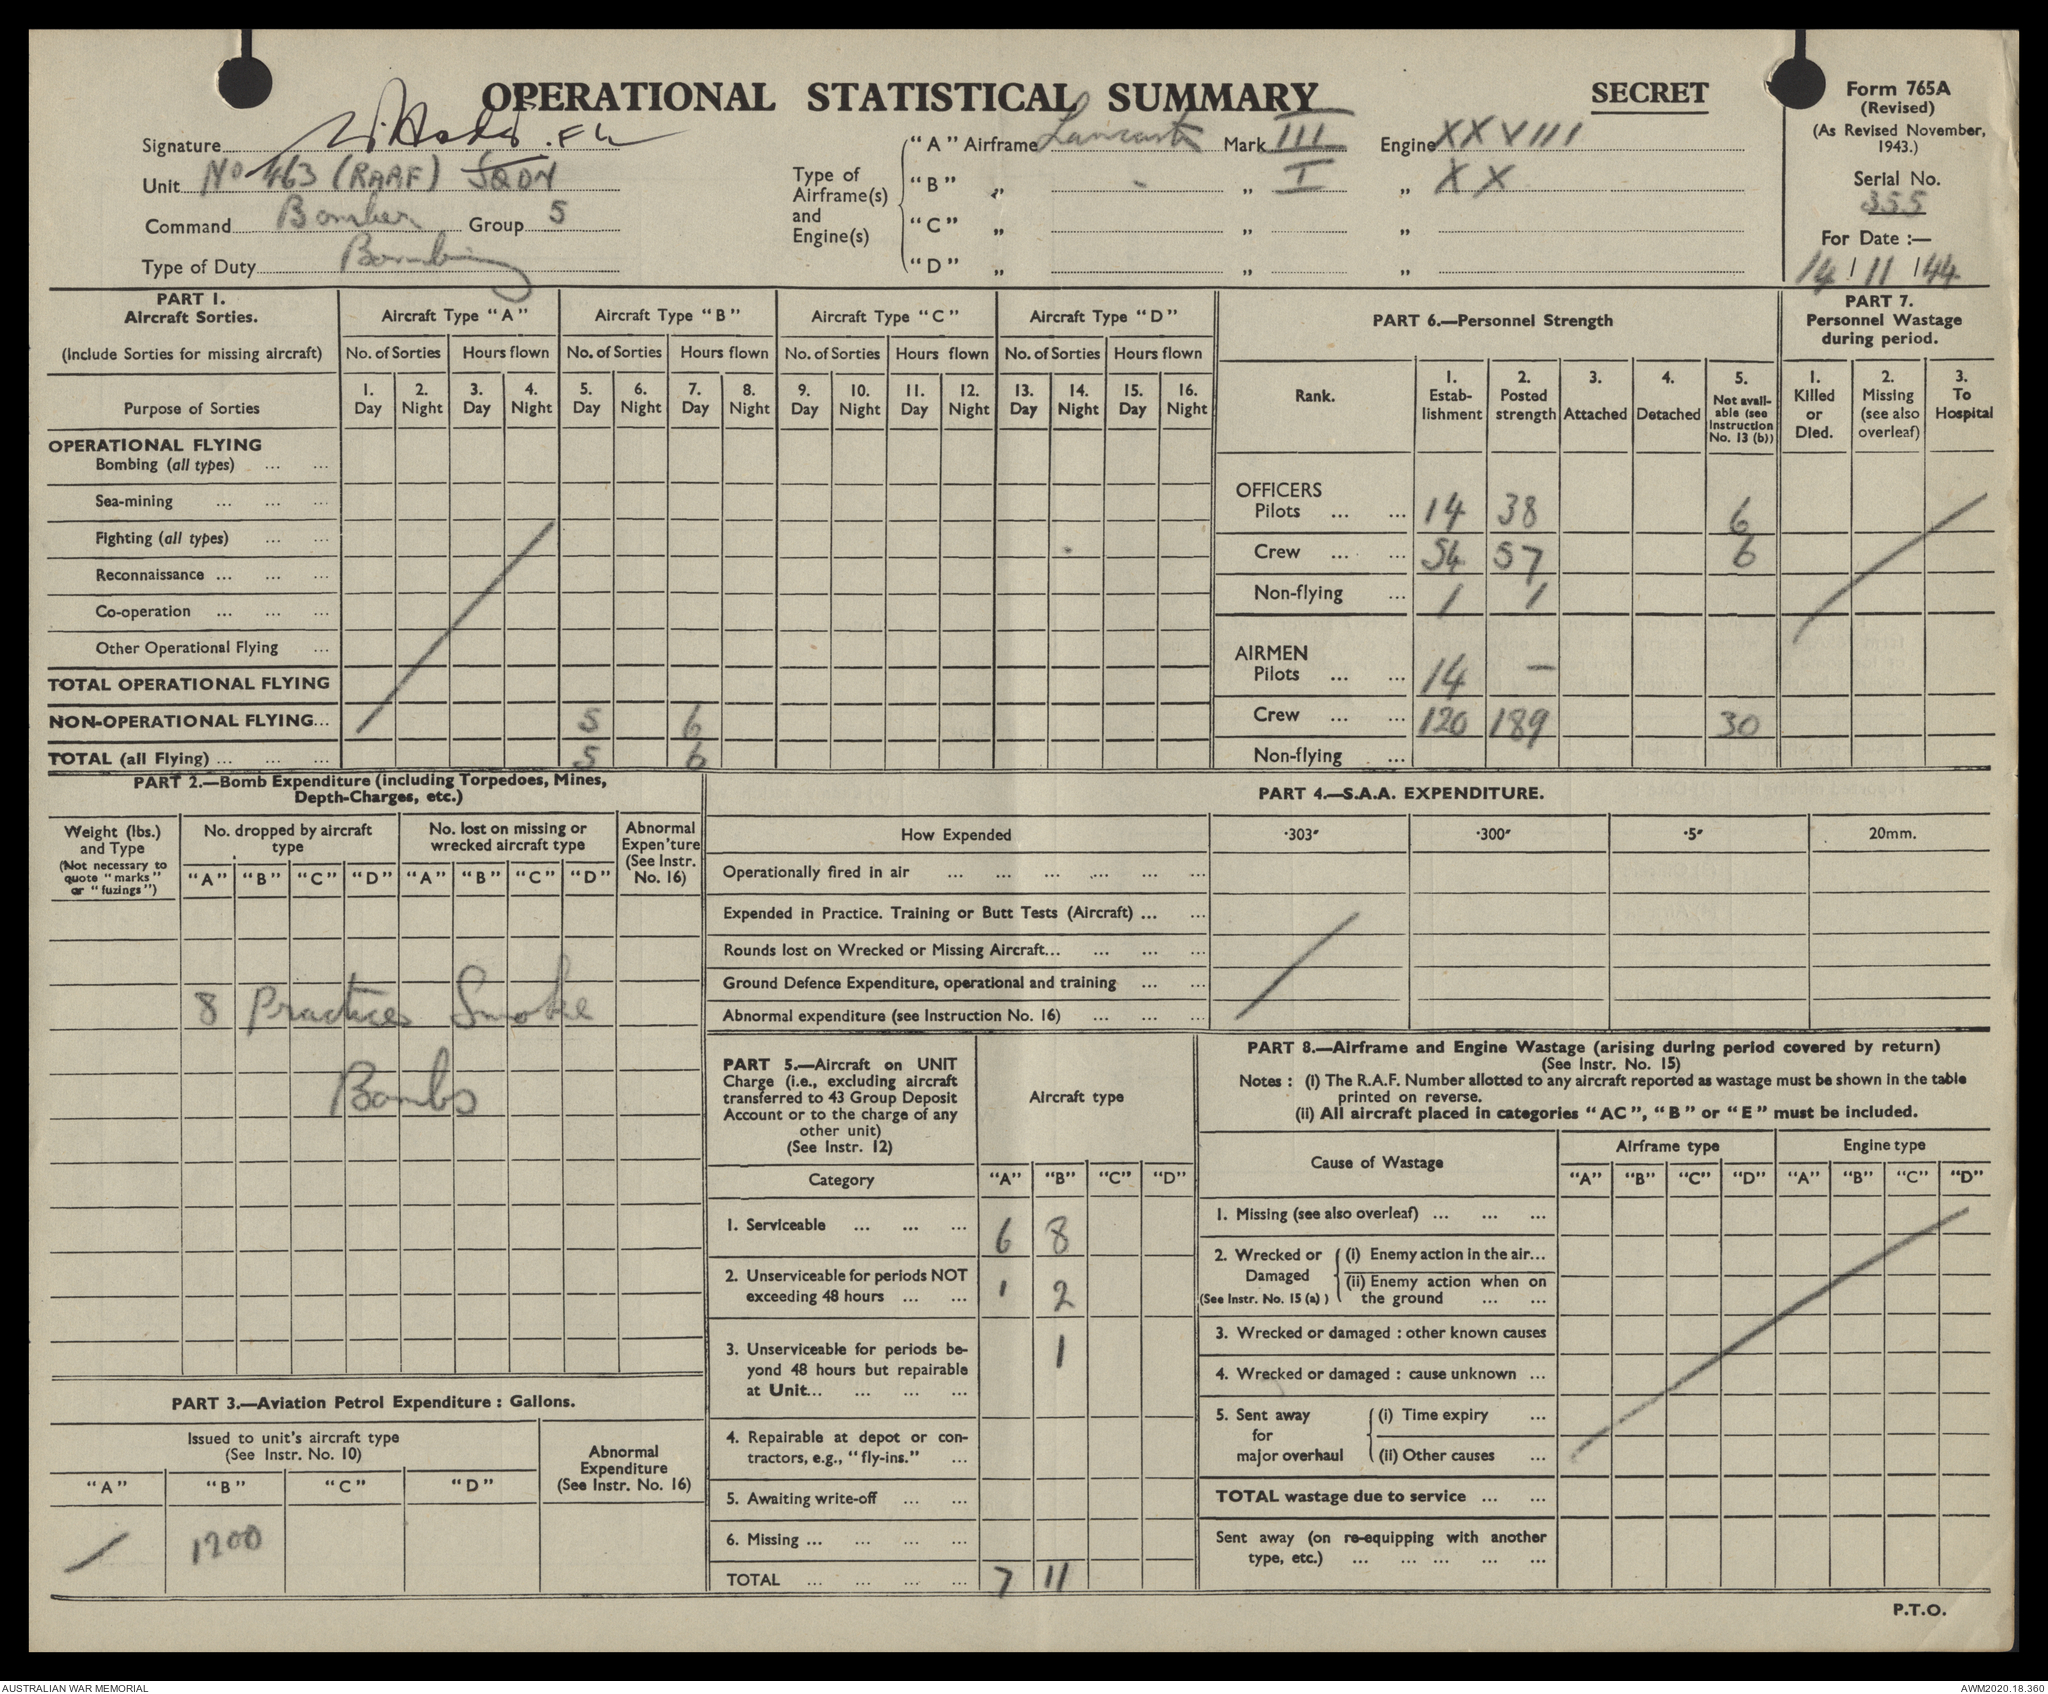 OPERATIONAL STATISTICAL SUMMARY
SECRET
Form 765A
(Revised)
(As Revised November, 1943.)
Serial No.
355
For Date :—
14 / 11 / 44
Signature
Unit No 463 (RAAF) SQDN
Command Bomber Group 5
Type of Duty Bombing
Type of Airframe(s) and Engine(s)
"A" Airframe Lancaster Mark III Engine XXVIII
"B" „ - „ I „ XX
"C" „ „ „
"D" „ „ „
PART 1.
Aircraft Sorties.
(Include Sorties for missing aircraft)
Aircraft Type "A" Aircraft Type "B" Aircraft Type "C" Aircraft Type "D"
No. of Sorties Hours flown No. of Sorties Hours flown No. of Sorties Hours flown No. of Sorties Hours flown
Purpose of Sorties
1. Day 2. Night 3. Day 4. Night 5. Day 6. Night 7. Day 8. Night 9. Day 10. Night 11. Day 12. Night 13. Day 14. Night 15. Day 16. Night
OPERATIONAL FLYING
Bombing (all types) ... ...
Sea-mining ... ... ...
Fighting (all types) ... ...
Reconnaissance ... ... ...
Co-operation ... ... ...
Other Operational Flying ...
TOTAL OPERATIONAL FLYING
NON-OPERATIONAL FLYING... 5 6
TOTAL (all Flying) ... ... ... 5 6
PART 6.—Personnel Strength
Rank.
1. Estab-lishment
2. Posted strength
3. Attached
4. Detached
5. Not avail-able (see Instruction No. 13 (b))
OFFICERS
Pilots ... ... 14 38 6
Crew ... ... 54 57 6
Non-flying ... 1 1
AIRMEN
Pilots ... ... 14 —
Crew ... ... 120 189 30
Non-flying ...
PART 7.
Personnel Wastage
during period.
1. Killed or Died.
2. Missing (see also overleaf)
3. To Hospital
PART 2.—Bomb Expenditure (including Torpedoes, Mines,
Depth-Charges, etc.)
Weight (lbs.) and Type
(Not necessary to quote "marks" or "fuzings")
No. dropped by aircraft type
No. lost on missing or wrecked aircraft type
Abnormal Expen'ture (See Instr. No. 16)
"A" "B" "C" "D" "A" "B" "C" "D"
8 Practices Smoke
Bombs
PART 3.—Aviation Petrol Expenditure : Gallons.
Issued to unit's aircraft type
(See Instr. No. 10)
Abnormal Expenditure
(See Instr. No. 16)
"A" "B" "C" "D"
/ 1200
PART 4.—S.A.A. EXPENDITURE.
How Expended ·303" ·300" ·5" 20mm.
Operationally fired in air ... ... ... ... ... ...
Expended in Practice. Training or Butt Tests (Aircraft) ... ...
Rounds lost on Wrecked or Missing Aircraft... ... ... ...
Ground Defence Expenditure, operational and training ... ...
Abnormal expenditure (see Instruction No. 16) ... ... ...
PART 5.—Aircraft on UNIT
Charge (i.e., excluding aircraft
transferred to 43 Group Deposit
Account or to the charge of any
other unit)
(See Instr. 12)
Aircraft type
Category "A" "B" "C" "D"
1. Serviceable ... ... ... 6 8
2. Unserviceable for periods NOT
exceeding 48 hours ... ... 1 2
3. Unserviceable for periods be-
yond 48 hours but repairable
at Unit... ... ... ... 1
4. Repairable at depot or con-
tractors, e.g., "fly-ins." ...
5. Awaiting write-off ... ...
6. Missing ... ... ... ...
TOTAL ... ... ... ... 7 11
PART 8.—Airframe and Engine Wastage (arising during period covered by return)
(See Instr. No. 15)
Notes : (i) The R.A.F. Number allotted to any aircraft reported as wastage must be shown in the table
printed on reverse.
(ii) All aircraft placed in categories "AC", "B" or "E" must be included.
Cause of Wastage
Airframe type Engine type
"A" "B" "C" "D" "A" "B" "C" "D"
1. Missing (see also overleaf) ... ... ...
2. Wrecked or Damaged (See Instr. No. 15 (a) )
(i) Enemy action in the air...
(ii) Enemy action when on
the ground ... ...
3. Wrecked or damaged : other known causes
4. Wrecked or damaged : cause unknown ...
5. Sent away for major overhaul
(i) Time expiry ...
(ii) Other causes ...
TOTAL wastage due to service ... ...
Sent away (on re-equipping with another
type, etc.) ... ... ... ... ...
P.T.O.
AUSTRALIAN WAR MEMORIAL
AWM2020.18.360